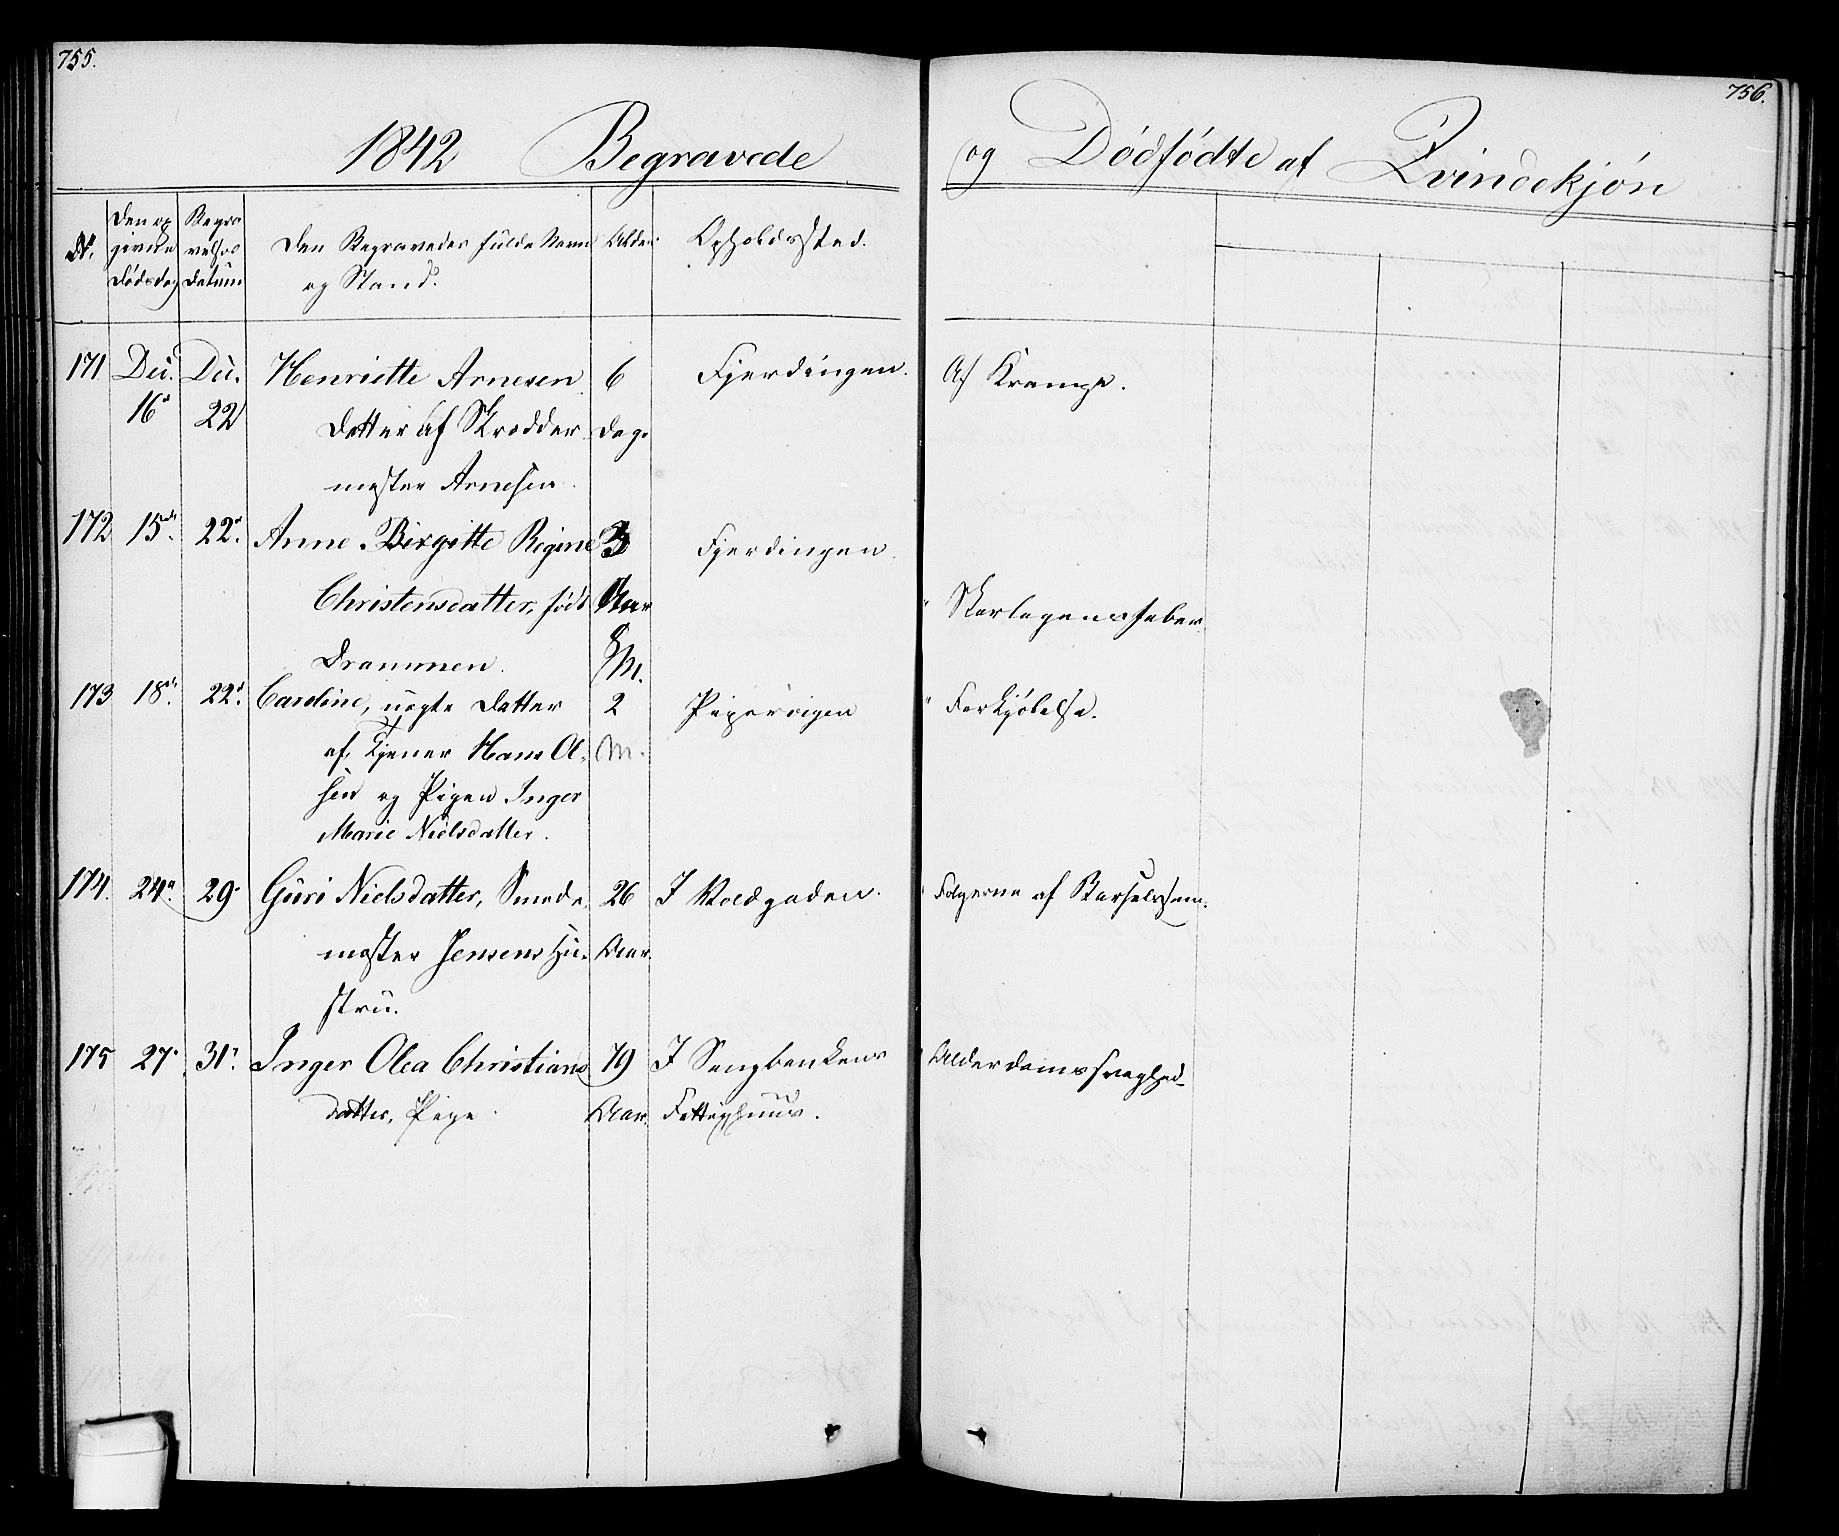 755.
756.
1842 Begravede og Dødfødte af Qvindekjøn
No. Den op Begra Den Begravedes fulde Navn Alder. Opholdssted.
givne velses og Stand.
Dødsdag Datum
171 Dec. Dec. Henriette Arnesen 6 Fjerdingen. Af Krampe.
16de 22 Datter af Skrædder- Dage
mester Arnesen.
172 15de. 22de. Anne Birgitte Regine 3 Fjerdingen.
Christensdatter, født Aar " Skarlagensfeber.
Drammen. 8 M.
173 18de. 22de. Caroline, uægte Datter 2 Pipervigen " Forkjølelse.
af Tjener Hans Ol- M.
sen og Pigen Inger
Marie Nielsdatter.
174. 24de. 29de Guri Nielsdatter, Smede- 26 I Voldgaden. " Følgerne af Barselssen.
mester Jensens Hu- Aar.
stru.
175 27de 31te. Inger Olea Christians 79 I Sengbenkens " Alderdomssvaghed
datter, Pige. Aar. Fattighuus.